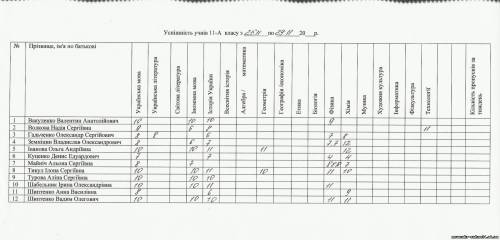 Успішність учнів 11-А класу з 25.11 по 29.11 20 р.
№ Прізвище, ім'я по батькові Українська мова Українська література Світова література Іноземна мова Історія України Всесвітня історія Алгебра / математика Геометрія Географія /економіка Етика Біологія Фізика Хімія Музика Художня культура Інформатика Фізкультура Технології Кількість пропусків за тиждень
1 Вакуленко Валентин Анатолійович 10 10 10 9
2 Волкова Надія Сергіївна 9 6 8 11
3 Гальченко Олександр Сергійович 8 8 6 7 8
4 Земніцин Владислав Олександрович 8 6 7 7,7 12
5 Іванова Ольга Андріївна 10 10 11 11 12
6 Куценко Денис Едуардович 7 7 4 4
7 Майніч Альона Сергіївна 8 7 7
8 Тикул Ілона Сергіївна 10 10 11 10 11 10
9 Турова Аліна Сергіївна 10 10 10
10 Шабельник Ірина Олександрівна 10 10 11 11
11 Шиптенко Анна Василівна 8 6 9
12 Шиптенко Вадим Олегович 10 10 10 11 11